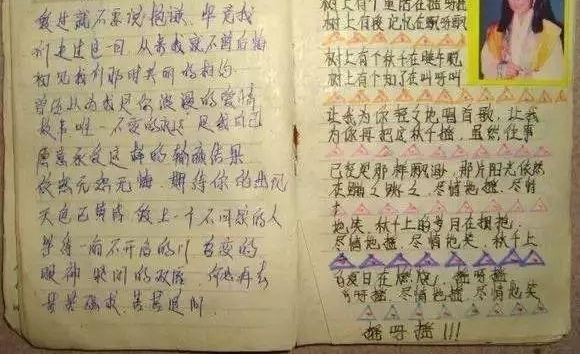 爱过就不要说抱歉 毕竟我
们走过这一回 从来我就不曾后悔
初见我们那时共同的相约
曾经以为我是你浪漫的爱情
故事唯一不变的永远 是我自己
愿意承受这样的输赢结果
依然无怨无悔 期待你的出现
天色已黄昏 爱上一个不回家的人
等待一扇不开启的门 善变的
眼神 紧闭的双唇 何必再去
苦苦强求 苦苦追问
树上有个童话在摇呀摇
树上有段记忆在飘呀飘
树上有个秋千在摇呀摇
树上有个知了在叫呀叫
让我为你轻轻地唱首歌 让我
为你再把这秋千摇 虽然往事
已变是那样飘渺 那片阳光依然
在蹦蹦跳跳 尽情地摇 尽情
地笑 秋千上的岁月在拥抱
尽情地摇 尽情地笑 秋千上
的夏日在燃烧 摇呀摇
摇呀摇 尽情地摇 尽情地笑
摇呀摇!!!